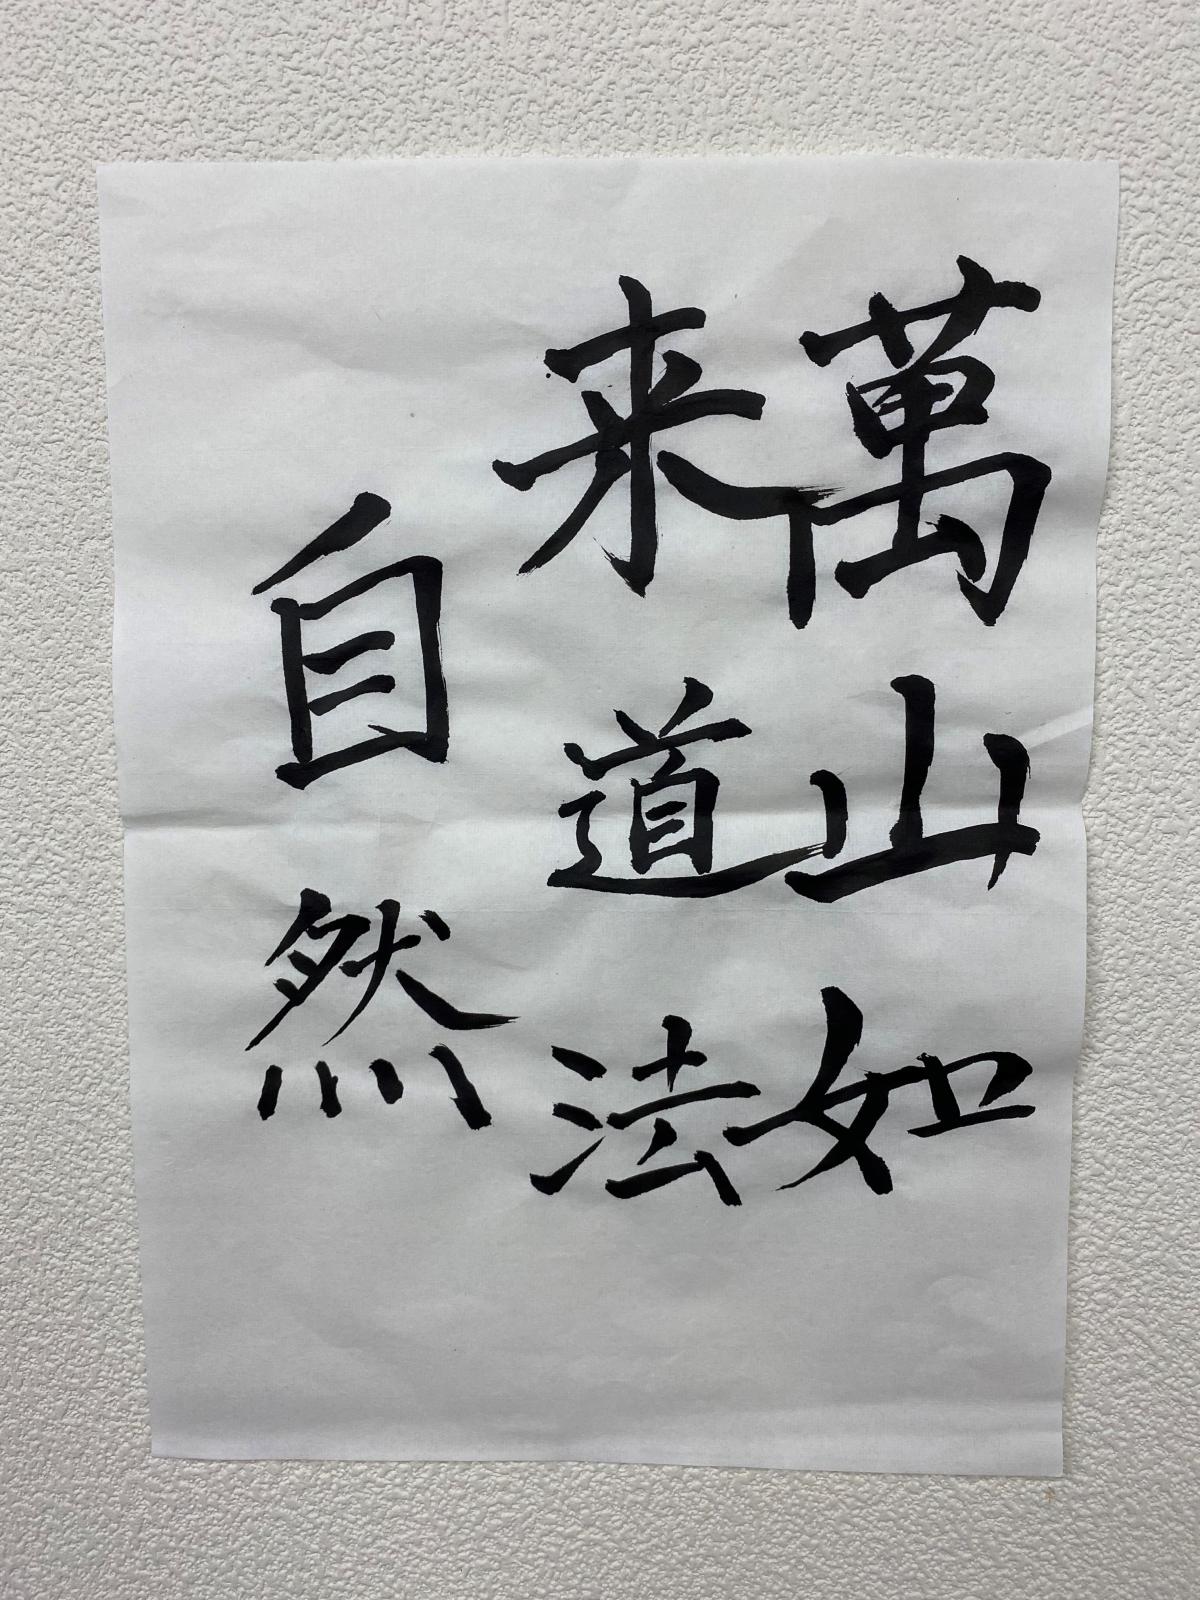 萬山如
来道法
自然